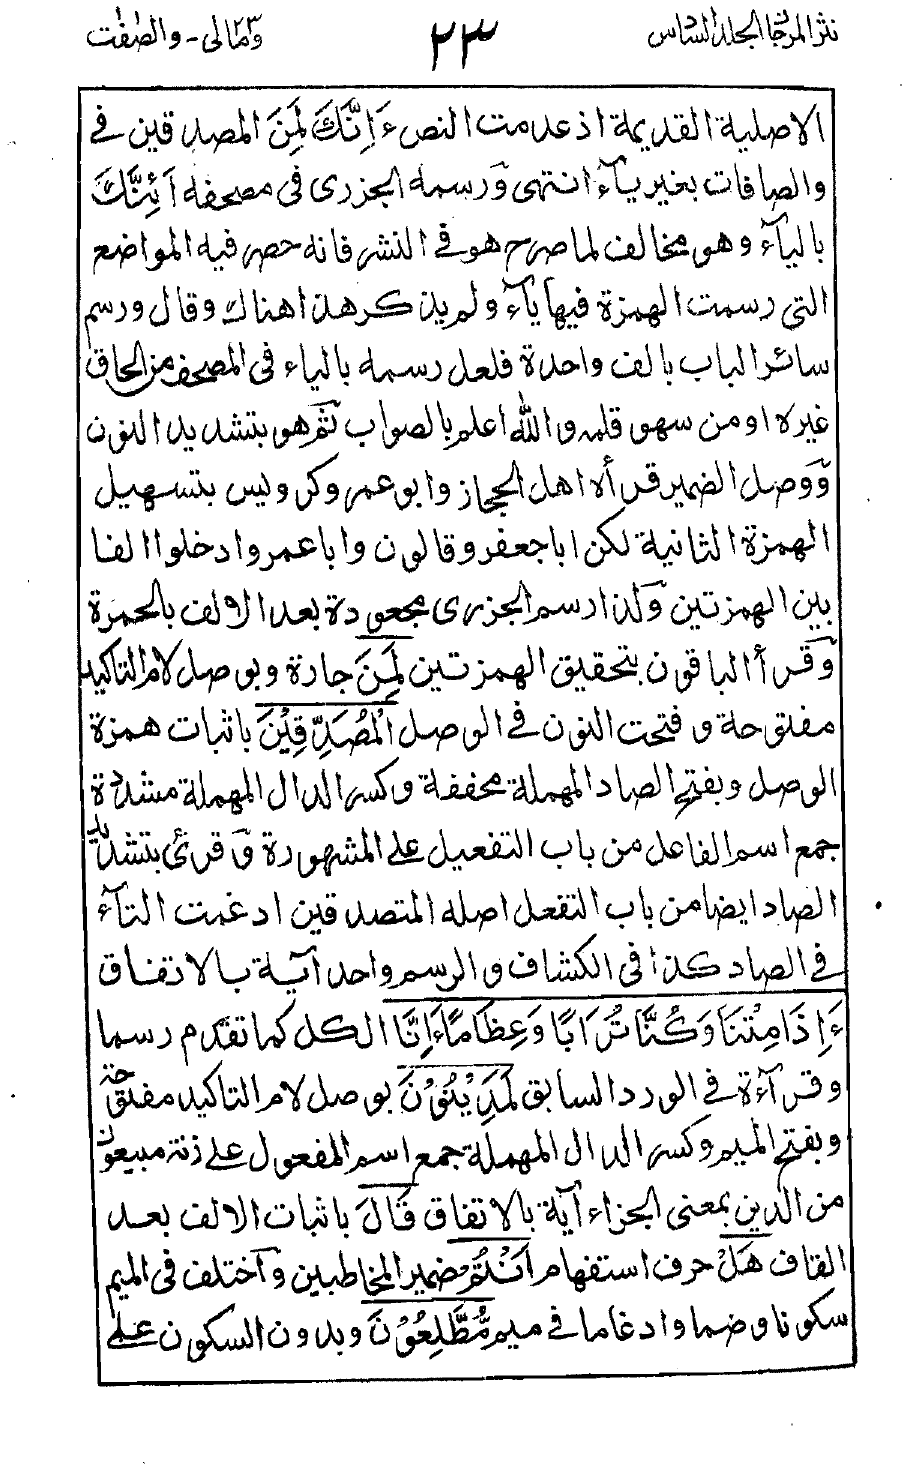 نثر المرجان الجلد السادس
٢٣
ومالى - والصّٰفّٰت
الاصلية القديمة اذ عدمت النص ءَاِنَّكَ لَمِنَ المصدقين في
والصافات بغير ياء انتهى وَرسمه الجزرى فى مصحفه اَئِنَّكَ
بالياء وهو مخالف لما صرح هو في النشر فانه حصر فيه المواضع
التي رسمت الهمزة فيها ياء ولم يذكر هذا هناك وقال ورسم
سائر الباب بالف واحدة فلعل رسمه بالياء فى المصحف من الحاق
غيره او من سهو قلمه والله اعلم بالصواب ثم هو بتشديد النون
وَوصل الضمير قرأه اهل الحجاز وابو عمرو وكرويس بتسهيل
الهمزة الثانية لكن ابا جعفر وقالون وابا عمرو ادخلوا الفا
بين الهمزتين وَلذا رسم الجزرى مجعودة بعد الالف بالحمرة
وَقرأ الباقون بتحقيق الهمزتين لَمِنَ جارة وبوصل لام التاكيد
مفتوحة وفتحت النون في الوصل الْمُصَدِّقِيْنَ باثبات همزة
الوصل وبفتح الصاد المهملة مخففة وكسر الدال المهملة مشددة
جمع اسم الفاعل من باب التفعيل على المشهورة وَقرئ بتشديد
الصاد ايضا من باب التفعل اصله المتصدقين ادغمت التاء
في الصاد كذا فى الكشاف والرسم واحد آية بالاتفاق
ءَاِذَا مِتْنَا وَكُنَّا تُرَابًا وَعِظَامًا ءَاِنَّا الكل كما تقدم رسما
وقراءة في الورد السابق لَمَدِيْنُوْنَ بوصل لام التاكيد مفتوحة
وبفتح الميم وكسر الدال المهملة جمع اسم المفعول على زنة مبيعون
من الدين بمعنى الجزاء آية بالاتفاق قَالَ باثبات الالف بعد
القاف هَلْ حرف استفهام اَنْتُمْ ضمير المخاطبين وَاختلف فى الميم
سكونا وضما وادغاما في ميم مُّطَّلِعُوْنَ وبدون السكون على